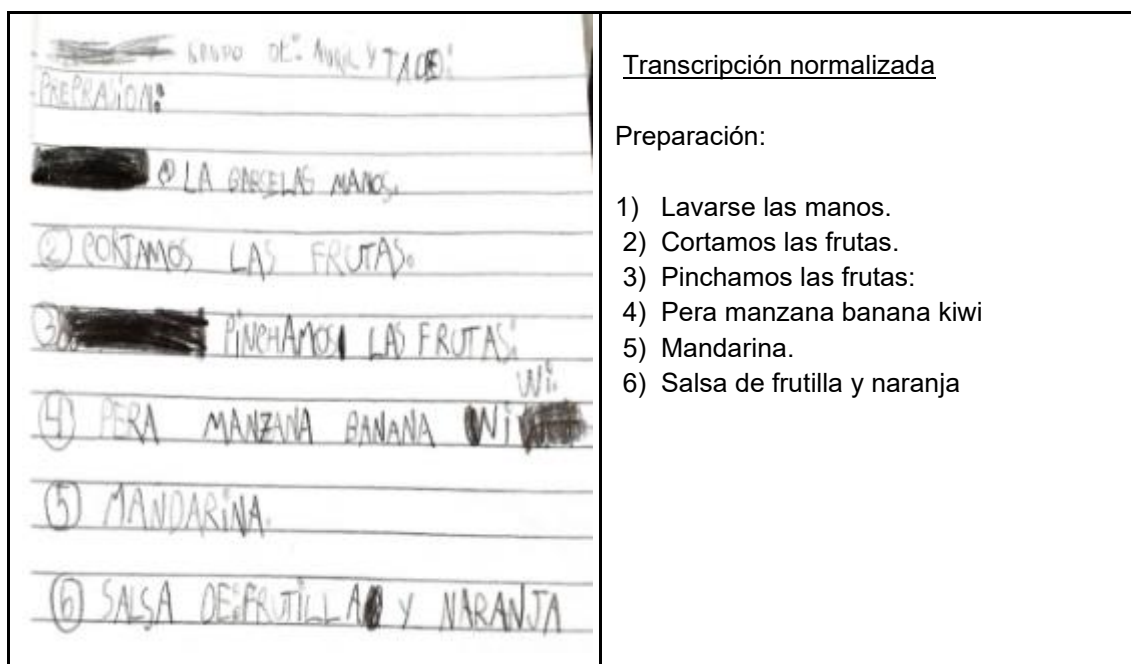 GRUPO DE: ABRIL Y
PREPRASION:
LA BARSELAS MANOS.
2 CORTAMOS LAS FRUTAS.
3 PINCHAMOS LAS FRUTAS:
Wi.
4 PERA MANZANA BANANA Wi
5 MANDARiNA.
6 SALSA DE:FRUTiLLA Y NARANJA
Transcripción normalizada
Preparación:
1) Lavarse las manos.
2) Cortamos las frutas.
3) Pinchamos las frutas:
4) Pera manzana banana kiwi
5) Mandarina.
6) Salsa de frutilla y naranja